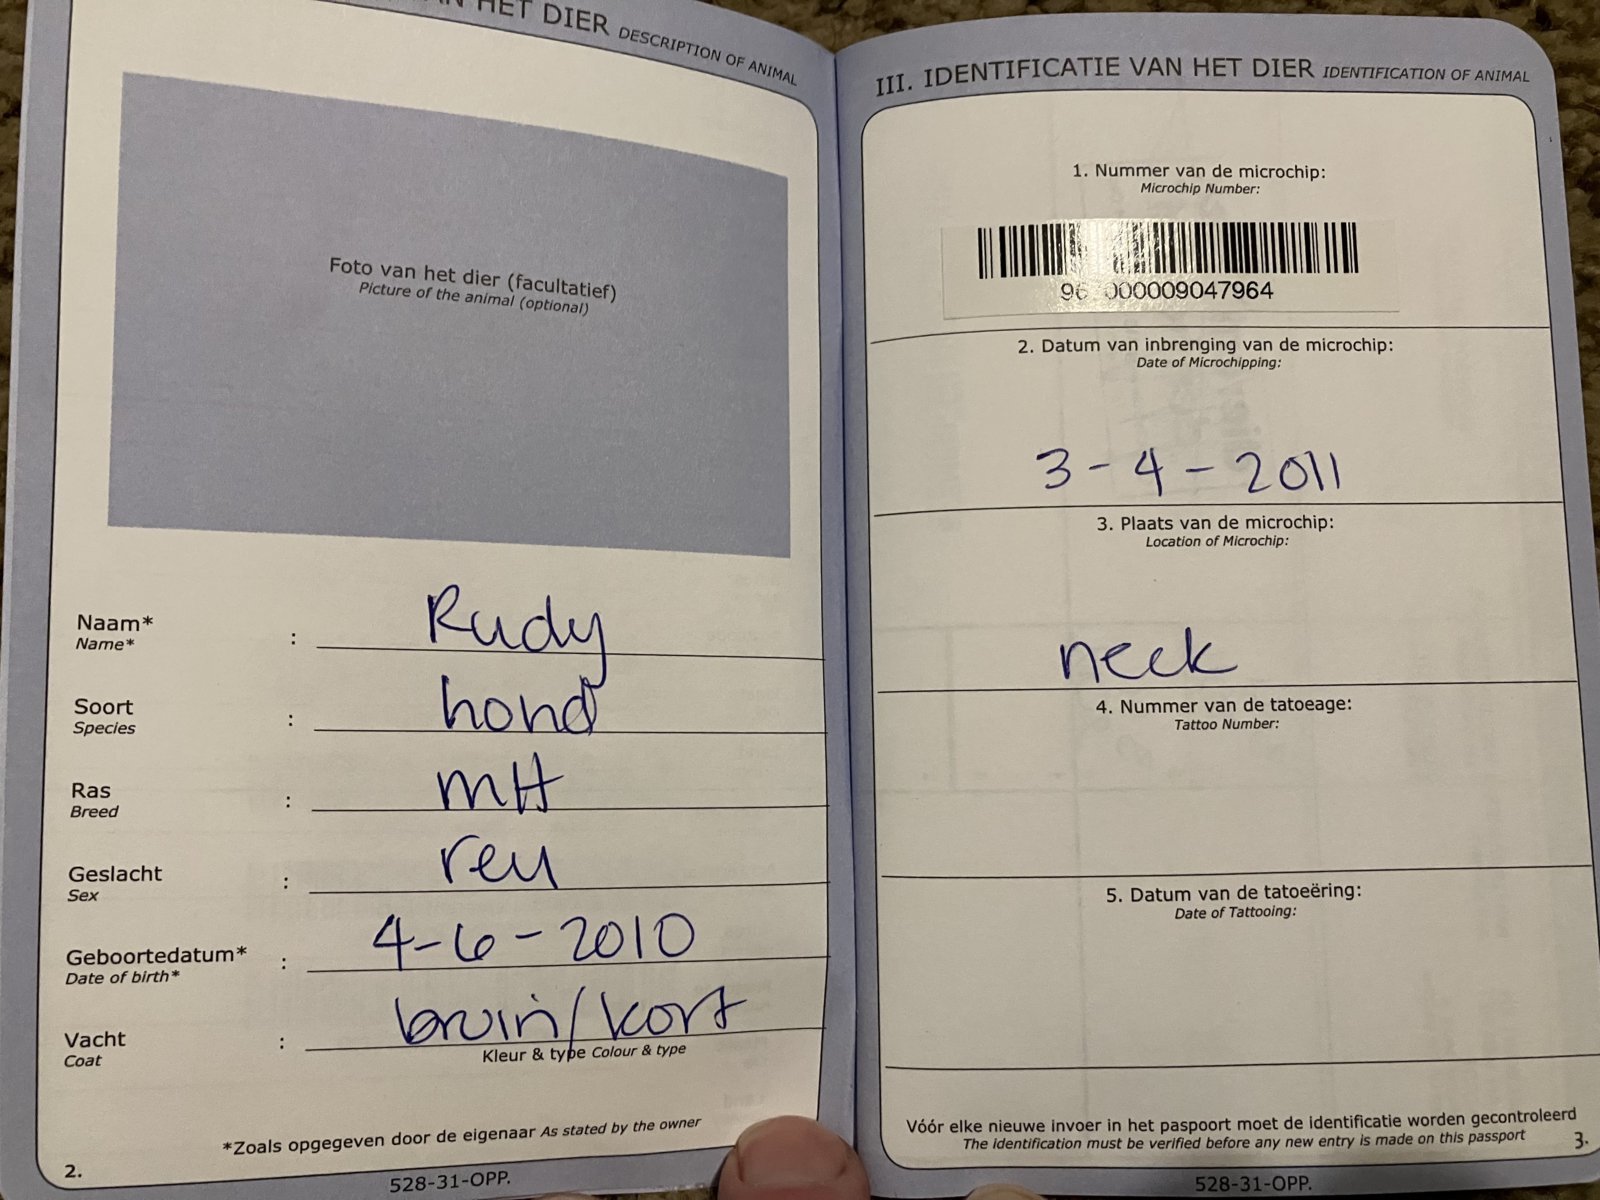 HET DIER DESCRIPTION OF ANIMAL
Foto van het dier (facultatief)
Picture of the animal (optional)
Naam* : Rudy
Name*
Soort : hond
Species
Ras : MH
Breed
Geslacht : reu
Sex
Geboortedatum* : 4-6-2010
Date of birth*
Vacht : bruin/kort
Coat
Kleur & type Colour & type
*Zoals opgegeven door de eigenaar As stated by the owner
2.
528-31-OPP.
III. IDENTIFICATIE VAN HET DIER IDENTIFICATION OF ANIMAL
1. Nummer van de microchip:
Microchip Number:
000009047964
2. Datum van inbrenging van de microchip:
Date of Microchipping:
3-4-2011
3. Plaats van de microchip:
Location of Microchip:
neck
4. Nummer van de tatoeage:
Tattoo Number:
5. Datum van de tatoeëring:
Date of Tattooing:
Vóór elke nieuwe invoer in het paspoort moet de identificatie worden gecontroleerd
The identification must be verified before any new entry is made on this passport
3.
528-31-OPP.